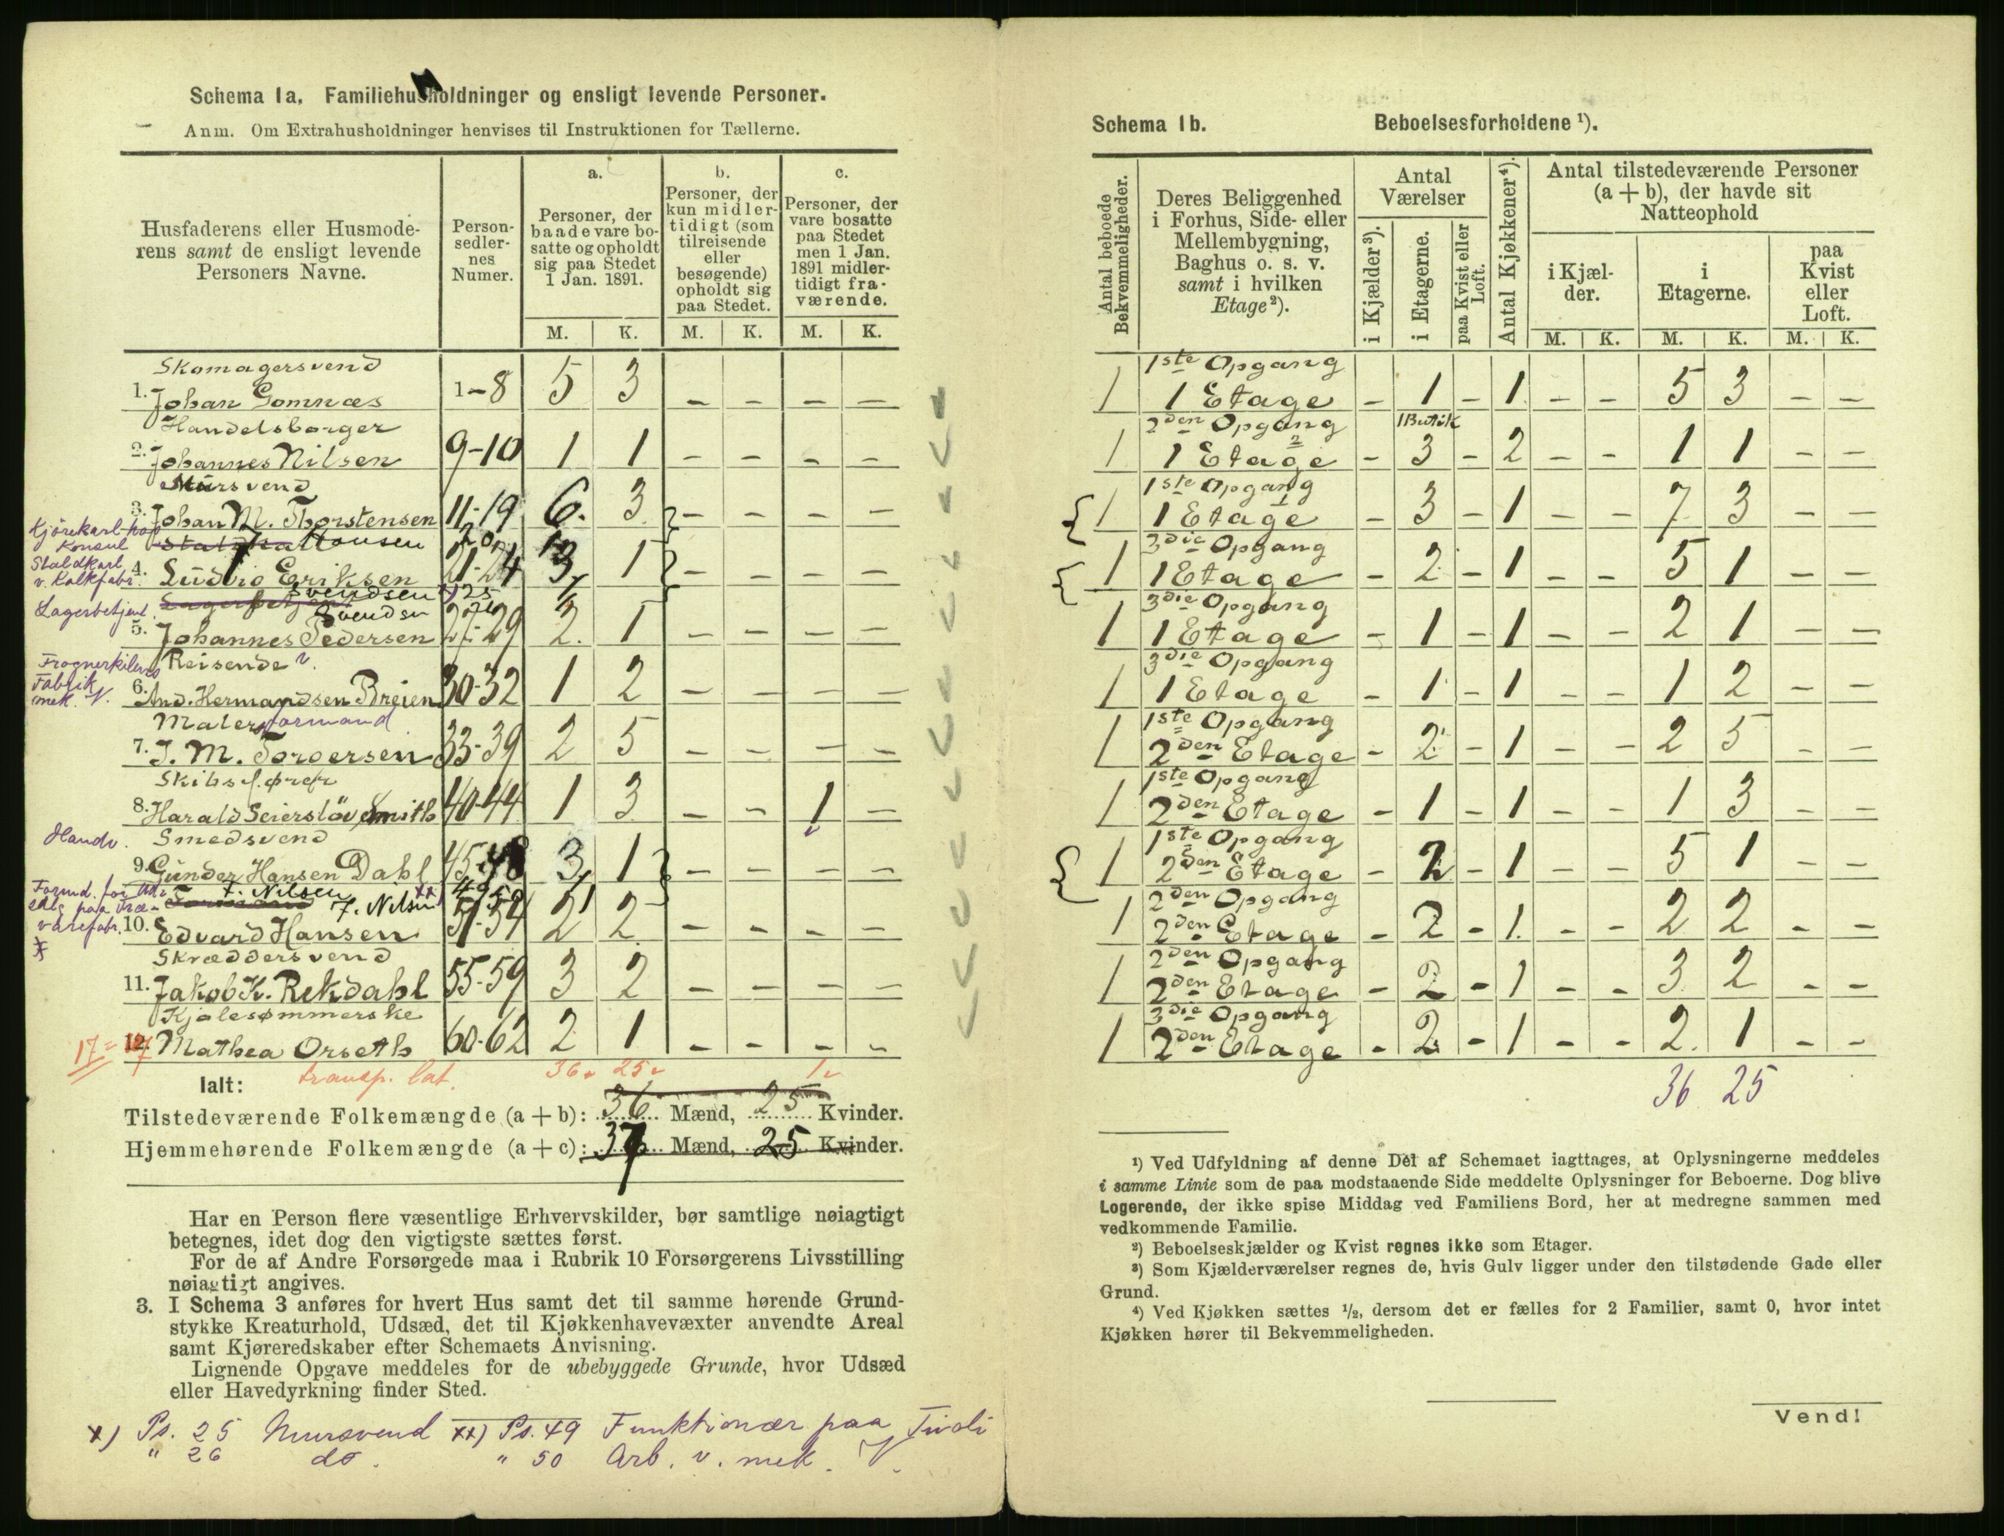 Schema 1a. Familiehusholdninger og ensligt levende Personer.
Anm. Om Extrahusholdninger henvises til Instruktionen for Tællerne.
Husfaderens eller Husmode-
rens samt de ensligt levende
Personers Navne.
Person-
sedler-
nes
Numer.
a.
Personer, der
baade vare bo-
satte og opholdt
sig paa Stedet
1 Jan. 1891.
b.
Personer, der
kun midler-
tidigt (som
tilreisende
eller
besøgende)
opholdt sig
paa Stedet.
c.
Personer, der
vare bosatte
paa Stedet
men 1 Jan.
1891 midler-
tidigt fra-
værende.
M. K. M. K. M. K.
Skomagersvend
1. Johan Gomnæs 1-8 5 3 – – – –
Handelsborger
2. Johannes Nilsen 9-10 1 1 – – – –
Mursvend
3. Johan M. Thorstensen 11-19 6. 3 – – – –
Kjørekarl hos
Konsul
Hansen 20
Staldkarl
v. Kalkfabr.
4. Ludvig Eriksen 21-24 3 1 – – – –
Svendsen 25
Lagerbetjent
Svendsen 26
5. Johannes Pedersen 27-29 2 1 – – – –
Frognerkilens
Fabrik
mek. V.
Reisende v.
6. And. Hermandsen Breien 30-32 1 2 – – – –
Malerformand
7. J. M. Torgersen 33-39 2 5 – – – –
Skibsfører
8. Harald Seierstöv Smith 40-44 1 3 – – 1 –
Handv.
Smedsvend
9. Gunder Hansen Dahl 45-48 3 1
Formd. for Ud-
salg paa Træ-
varefabr.
T. Nilsen 49
F. Nilsen xx) 50
10. Edvard Hansen 51-54 2 2 – – – –
Skræddersvend
11. Jakob K. Rekdahl 55-59 3 2 – – – –
Kjolesømmerske
17 = 17
12. Mathea Orseth 60-62 2 1 – – – –
Ialt: transp. lat. 36 25 1
Tilstedeværende Folkemængde (a + b): 36 Mænd, 25 Kvinder.
Hjemmehørende Folkemængde (a + c): 37 Mænd, 25 Kvinder.
Har en Person flere væsentlige Erhvervskilder, bør samtlige nøiagtigt
betegnes, idet dog den vigtigste sættes først.
For de af Andre Forsørgede maa i Rubrik 10 Forsørgerens Livsstilling
nøiagtigt angives.
3. I Schema 3 anføres for hvert Hus samt det til samme hørende Grund-
stykke Kreaturhold, Udsæd, det til Kjøkkenhavevæxter anvendte Areal
samt Kjøreredskaber efter Schemaets Anvisning.
Lignende Opgave meddeles for de ubebyggede Grunde, hvor Udsæd
eller Havedyrkning finder Sted.
x) Ps. 25 Mursvend xx) Ps. 49 Funktionær paa Tivoli
" 26 do. " 50 Arb. v. mek. V.
Schema 1b. Beboelsesforholdene ¹).
Antal beboede
Bekvemmeligheder.
Deres Beliggenhed
i Forhus, Side- eller
Mellembygning,
Baghus o. s. v.
samt i hvilken
Etage²).
Antal
Værelser
i Kjælder³).
i Etagerne.
paa Kvist eller
Loft.
Antal Kjøkkener⁴).
Antal tilstedeværende Personer
(a + b), der havde sit
Natteophold
i Kjæl-
der.
i
Etagerne.
paa
Kvist
eller
Loft.
M. K. M. K. M. K.
1ste Opgang
1 1 Etage – 1 – 1 – – 5 3 – –
2den Opgang 1 Butik
1 1 Etage – 3 – 2 – – 1 1 – –
1ste Opgang
1 1 Etage – 3 – 1 – – 7 3 – –
3die Opgang
1 1 Etage – 2 – 1 – – 5 1 – –
3die Opgang
1 1 Etage – 1 – 1 – – 2 1 – –
3die Opgang
1 1 Etage – 1 – 1 – – 1 2 – –
1ste Opgang
1 2den Etage – 2 – 1 – – 2 5 – –
1ste Opgang
1 2den Etage – 1 – 1 – – 1 3 – –
1ste Opgang
1 2den Etage – 2 – 1 – – 5 1 – –
2den Opgang
1 2den Etage – 2 – 1 – – 2 2 – –
2den Opgang
1 2den Etage – 2 – 1 – – 3 2 – –
3die Opgang
1 2den Etage – 2 – 1 – – 2 1 – –
36 25
¹) Ved Udfyldning af denne Del af Schemaet iagttages, at Oplysningerne meddeles
i samme Linie som de paa modstaaende Side meddelte Oplysninger for Beboerne. Dog blive
Logerende, der ikke spise Middag ved Familiens Bord, her at medregne sammen med
vedkommende Familie.
²) Beboelseskjælder og Kvist regnes ikke som Etager.
³) Som Kjælderværelser regnes de, hvis Gulv ligger under den tilstødende Gade eller
Grund.
⁴) Ved Kjøkken sættes ½, dersom det er fælles for 2 Familier, samt 0, hvor intet
Kjøkken hører til Bekvemmeligheden.
Vend!